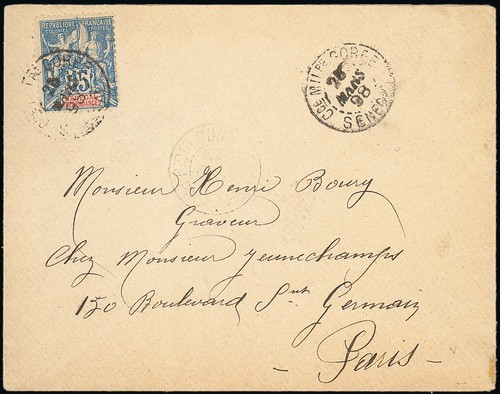 RÉPUBLIQUE FRANÇAISE
COLONIES POSTES
15
CCE MILRE GORÉE
26
MARS
98
SÉNÉGAL
Monsieur Henri Boury
Graveur
Chez Monsieur Jeunechamps
150 Boulevard St Germain
- Paris -